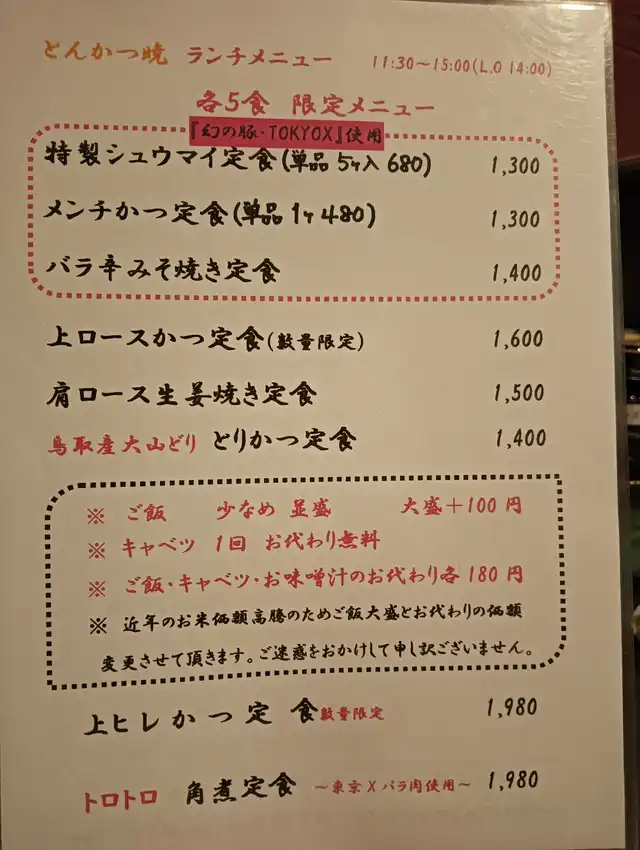 とんかつ暁 ランチメニュー 11:30～15:00(L.O 14:00)
各5食 限定メニュー
『幻の豚・TOKYOX』使用
特製シュウマイ定食(単品 5ヶ入 680) 1,300
メンチかつ定食(単品 1ヶ 480) 1,300
バラ辛みそ焼き定食 1,400
上ロースかつ定食(数量限定) 1,600
肩ロース生姜焼き定食 1,500
鳥取産大山どり とりかつ定食 1,400
※ ご飯 少なめ 並盛 大盛＋100円
※ キャベツ 1回 お代わり無料
※ ご飯・キャベツ・お味噌汁のお代わり各180円
※ 近年のお米価額高騰のためご飯大盛とお代わりの価額
変更させて頂きます。ご迷惑をおかけして申し訳ございません。
上ヒレかつ定食数量限定 1,980
トロトロ 角煮定食 ～東京Xバラ肉使用～ 1,980